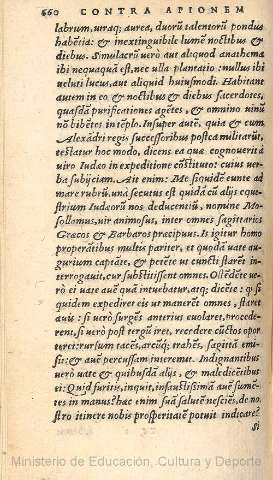 660 CONTRA APIONEM
labrum, utraq; aurea, duorũ talentorũ pondus
habẽtia: & inextinguibile lumẽ noctibus &
diebus. Simulacrũ verò aut aliquod anathema
ibi nequaquã est, nec ulla plantatio: nullus ibi
veluti lucus, aut aliquid huiusmodi. Habitant
autem in eo & noctibus & diebus sacerdotes,
quasdã purificationes agẽtes, & omnino vinũ
nõ bibẽtes in tẽplo. Insuper autẽ, quia & cum
Alexãdri regis successoribus postea militarũt,
testatur hoc modo, dicens ea quæ cognouerit à
viro Iudæo in expeditione cõstituto: cuius ver-
ba subijciam. Ait enim: Me siquidẽ eunte ad
mare rubrũ, unà secutus est quidã cũ alijs eque
strium Iudæorũ nos deducentiũ, nomine Mo-
sollamus, vir animosus, inter omnes sagittarios
Græcos & Barbaros præcipuus. Is igitur homo
properãtibus multis pariter, et quodã vate au-
gurium captãte, & petẽte ut cuncti starẽt in-
terrogauit, cur substitissent omnes. Ostẽdẽte ve-
rò ei vate auẽ quã intuebatur, atq; dicẽte: q̃ si
quidem expediret eis ut manerẽt omnes, staret
auis: si verò surgẽs anterius euolaret, procede-
rent, si verò post tergũ iret, recedere cũctos opor
teret: rursum tacẽs, arcũq; trahẽs, sagittã emi-
sit: & auẽ percussam interemit. Indignantibus
verò vate & quibusdã alijs, & maledicẽtibus
ei: Quid furitis, inquit, infaustissimã auẽ sumẽ-
tes in manus? hæc enim suã salutẽ nesciẽs, de no-
stro itinere nobis prosperitatẽ potuit indicare?
si
Ministerio de Educación, Cultura y Deporte